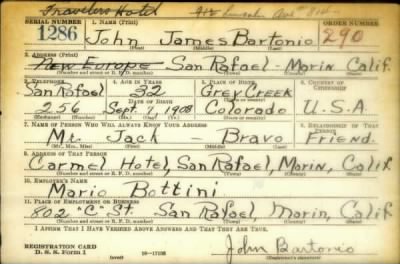 Travelers Hotel
SERIAL NUMBER 1. NAME (Print) ORDER NUMBER
1286 John James Bartonio 290
(First) (Middle) (Last)
2. ADDRESS (Print)
New Europe San Rafael - Marin Calif.
(Number and street or R. F. D. number) (Town) (County) (State)
3. TELEPHONE 4. AGE IN YEARS 5. PLACE OF BIRTH 6. COUNTRY OF CITIZENSHIP
San Rafael 32 Grey Creek
DATE OF BIRTH
256 Sept. 7, 1908 Colorado U.S.A.
(Exchange) (Number) (Mo.) (Day) (Yr.) (State or country)
7. NAME OF PERSON WHO WILL ALWAYS KNOW YOUR ADDRESS 8. RELATIONSHIP OF THAT PERSON
Mr. Jack - Bravo Friend.
(Mr., Mrs., Miss) (First) (Middle) (Last)
9. ADDRESS OF THAT PERSON
Carmel Hotel, San Rafael, Marin, Calif.
(Number and street or R. F. D. number) (Town) (County) (State)
10. EMPLOYER'S NAME
Mario Bottini
11. PLACE OF EMPLOYMENT OR BUSINESS
802 "C" St. San Rafael, Marin, Calif.
(Number and street or R. F. D. number) (Town) (County) (State)
I AFFIRM THAT I HAVE VERIFIED ABOVE ANSWERS AND THAT THEY ARE TRUE.
REGISTRATION CARD
D. S. S. Form 1 (over) John Bartonio